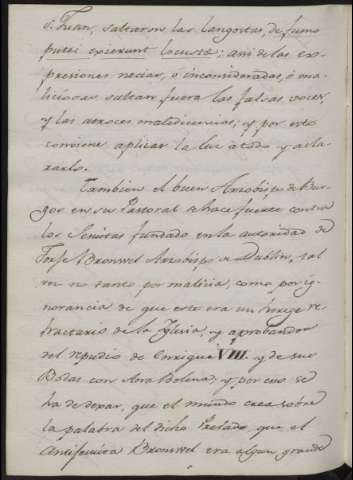 S. Juan, saltaron las langostas, de fumo
putei exierunt locustæ: asi de las ex-
presiones necias, o inconsideradas, ó ma-
liciosas saltan fuera las falsas voces,
y las atroces maledicencias; y por esto
conviene aplicar la luz à todo y acla-
rarlo.
Tambien el buen Arzobispo de Bur-
gos en su Pastoral se hace fuerte contra
los Jesuitas fundado en la autoridad de
Jorge Bronwel Arzobispo de Dublin, tal
vez no tanto por malicia, como por ig-
norancia de que este era un herege re-
fractario de la Iglesia, y aprobandor
del repudio de Enrique VIII. y de sus
Bodas con Ana Bolena, y por eso se
ha de dexar, que el mundo crea sobre
la palabra del dicho Prelado que el
Antijesuita Bronwel era algun grande